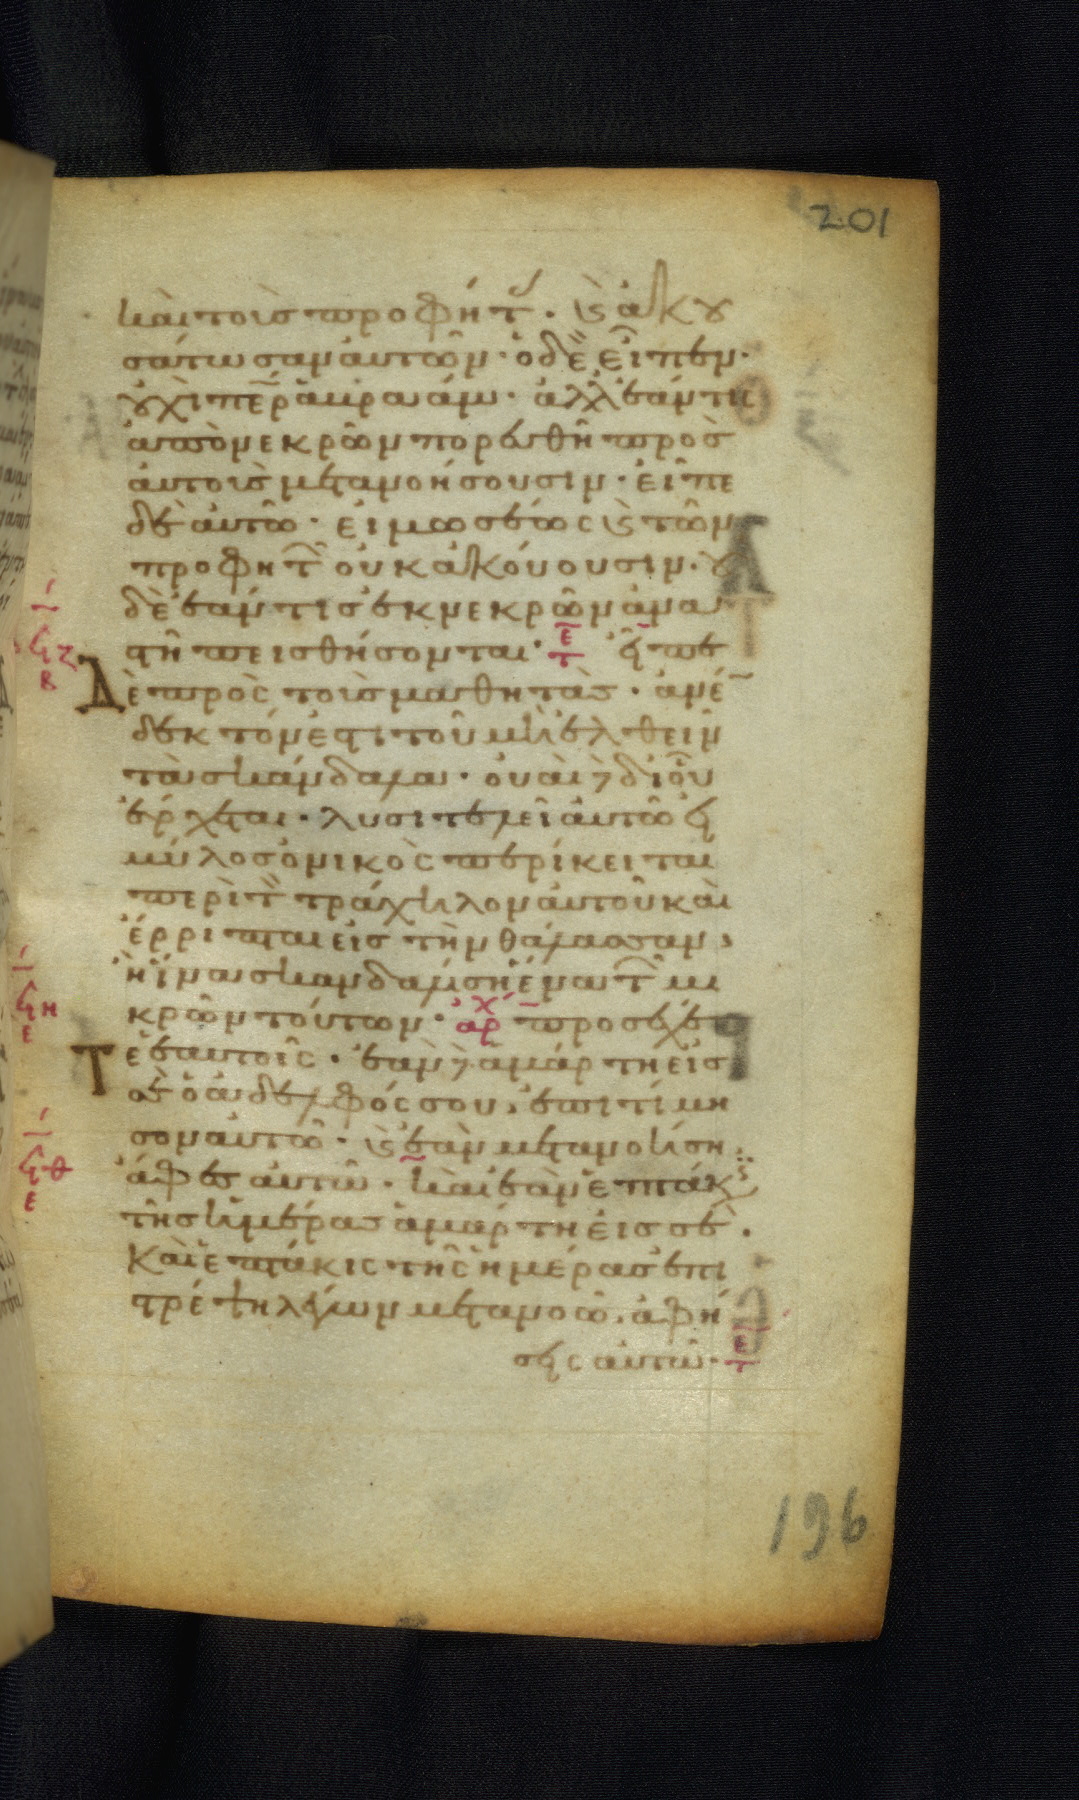 201
καὶ τοὺς προφήτ· κ ἀκου
σάτωσαν αὐτῶν· ὁ δὲ εἶπεν·
οὐχὶ περ ἀβραάμ· ἀλλ' ἐάν τις
ἀπὸ νεκρῶν πορευθῆ πρὸς
αὐτοὺς μετανοήσουσιν· εἶπε
δὲ αὐτῶ· εἰ μωσέως κ τῶν
προφητ οὐκ ἀκούουσιν· οὐ
δὲ ἐάν τις ἐκ νεκρῶν ἀνα
στῆ πεισθήσονται· ε τ εἶπε
Δὲ πρὸς τοὺς μαθητάς· ἀνέ
δεκτόν ἐστι τοῦ μὴ ἐλθεῖν
τὰ σκάνδαλα· οὐαὶ δὲ δι οὗ
ἔρχεται· λυσιτελεῖ αὐτῶ εἰ
μύλος ὀνικὸς περίκειται
περὶ τ τράχηλον αὐτοῦ καὶ
ἔρριπται εἰς τὴν θάλασσαν,
ἢ ἵνα σκανδαλίση ἕνα τ μι
κρῶν τούτων· αρχ προσέχε
Τε ἑαυτοῖς· ἐὰν δὲ ἁμάρτη εἰς
σὲ ὁ ἀδελφός σου, ἐπιτίμη
σον αὐτῶ· κ ἐὰν μετανοήση
ἄφες αὐτῶ· καὶ ἐὰν ἑπτάκις
τῆς ἡμέρας ἁμάρτη εἰς σὲ·
καὶ ἑπτάκις τῆς ἡμέρας ἐπι
στρέψη λέγων μετανοῶ, ἀφή
σεις αὐτῶ· ε τ
196